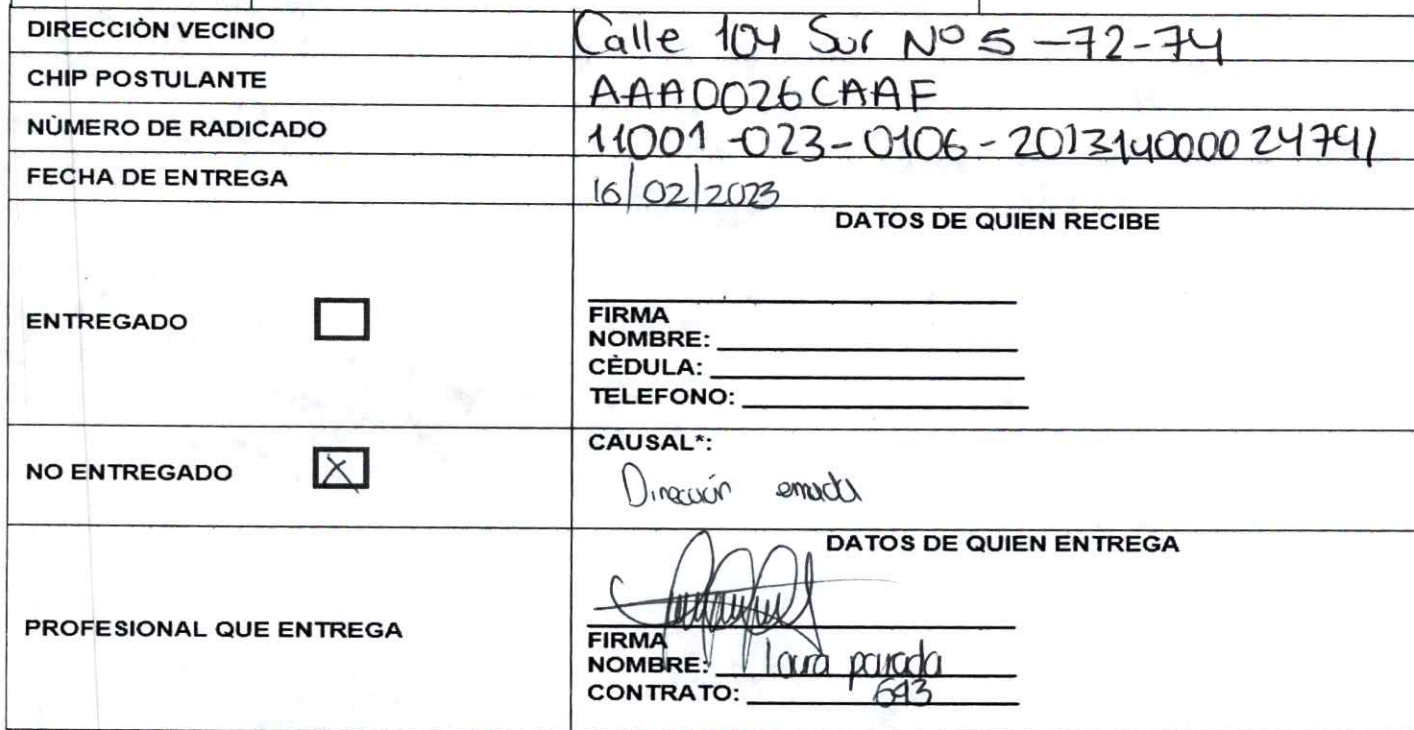 DIRECCIÒN VECINO Calle 104 Sur Nº 5 -72-74
CHIP POSTULANTE AAA0026CAAF
NÙMERO DE RADICADO 11001-023-0106-201314000024791
FECHA DE ENTREGA 16/02/2023
DATOS DE QUIEN RECIBE
ENTREGADO
FIRMA
NOMBRE:
CÈDULA:
TELEFONO:
NO ENTREGADO X
CAUSAL*:
Dirección errada
DATOS DE QUIEN ENTREGA
PROFESIONAL QUE ENTREGA
FIRMA
NOMBRE: laura parada
CONTRATO: 643